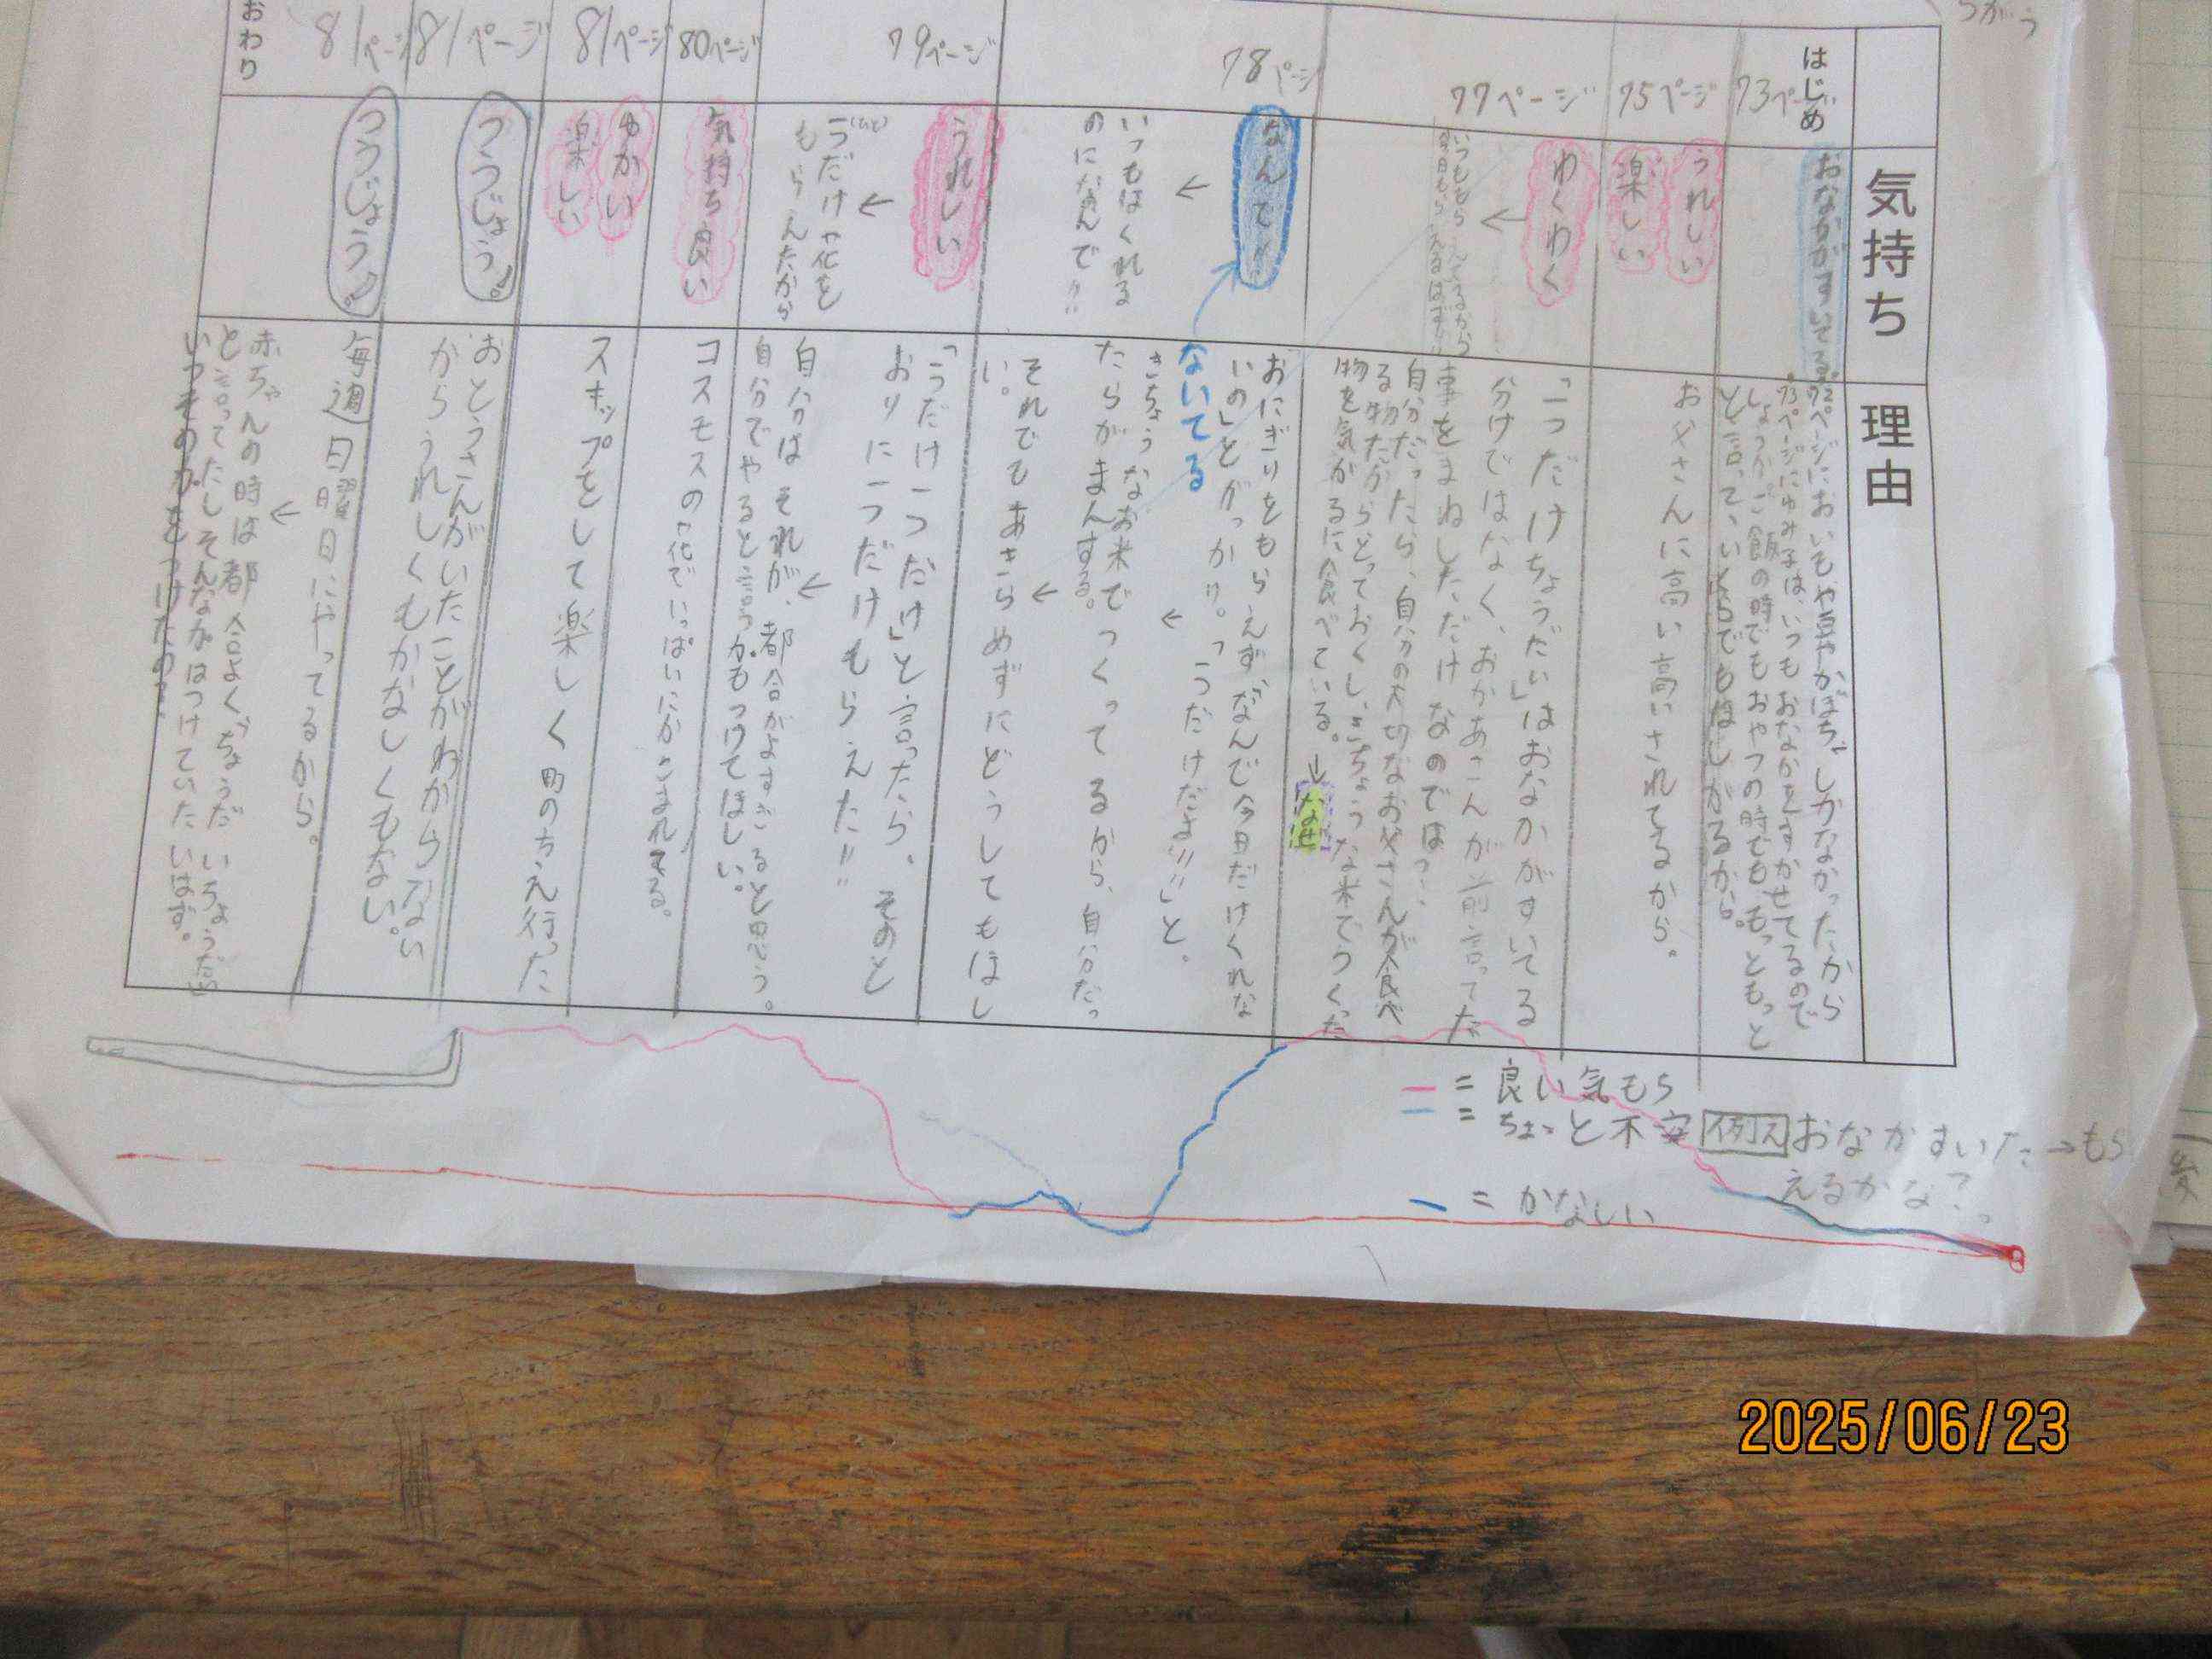 気持ち
理由
はじめ
73ページ
おなかがすいてる
72ページにおいもや豆やかぼちゃしかなかったから
73ページにゆみ子は、いつもおなかをすかせてるので
しょうか。ご飯の時でもおやつの時でも、もっともっと
と言って、いくらでもほしがるから。
75ページ
うれしい
楽しい
お父さんに高い高いされてるから。
77ページ
わくわく
←
いつももらってるから
今日もらえるはず!!
「一つだけちょうだい」はおなかがすいてる
分けではなく、おかあさんが前言ってた
事をまねしただけなのでは?
自分だったら、自分の大切なお父さんが食べ
る物だからとっておくし、きちょうな米でつくった
物を気がるに食べている。→なぜ
78ページ
なんで!!
←
いつもはくれる
のになんで!!
おにぎりをもらえず、なんで今日だけくれな
いの」とがっかり。「一つだけだよ!!!」と。
ないてる
←
きちょうなお米でつくってるから、自分だっ
たらがまんする。
←
それでもあきらめずにどうしてもほし
い。
79ページ
うれしい
←
一つ(ひと)だけ花を
もらえたから
「一つだけ一つだけ」と言ったら、そのと
おりに一つだけもらえた!!
←
自分はそれが、都合がよすぎると思う。
自分でやると言うかもつけてほしい。
80ページ
気持ち良い
コスモスの花でいっぱいにかこまれてる。
81ページ
ゆかい
楽しい
スキップをして楽しく町の方え行った
81ページ
ふつうじょう!。
おとうさんがいたことがわからない
からうれしくもかなしくもない。
81ページ
ふつうじょう!。
毎週日曜日にやってるから。
←
赤ちゃんの時は都合よく、ちょうだいちょうだい
と言ってたしそんなかはつけていたいはず。
いつそのかをつけたの?
おわり
= 良い気もち
= ちょっと不安 例え おなかすいた→もら
えるかな?。
= かなしい
2025/06/23